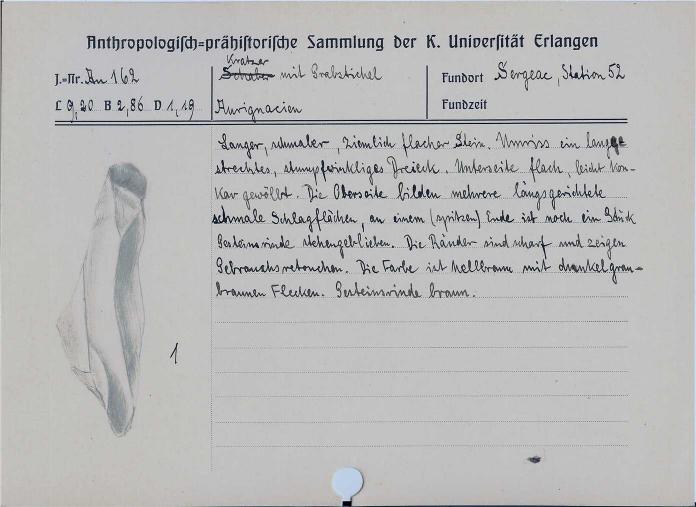 Anthropologisch-prähistorische Sammlung der K. Universität Erlangen
J.-Nr. An 162
Kratzer
Schaber mit Grabstichel
Fundort Sergeac, Station 52
L 9,20 B 2,86 D 1,19
Aurignacien
Fundzeit
Langer, schmaler, ziemlich flacher Stein. Umriss ein langge
strechtes, stumpfwinkliges Dreieck. Unterseite flach, leicht kon-
kav gewölbt. Die Oberseite bilden mehrere längsgerichtete
schmale Schlagflächen, an einem (spitzen) Ende ist noch ein Stück
Gesteinsrinde stehengeblieben. Die Ränder sind scharf und zeigen
Gebrauchsretouchen. Die Farbe ist hellbraun mit dunkelgrau-
braunen Flecken. Gesteinsrinde braun.
1